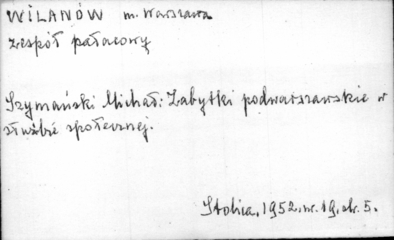 WILANÓW m. Warszawa
zespół pałacowy
Szymański Michał: Zabytki podwarszawskie w
służbie społecznej.
Stolica, 1952. nr. 19. str. 5.